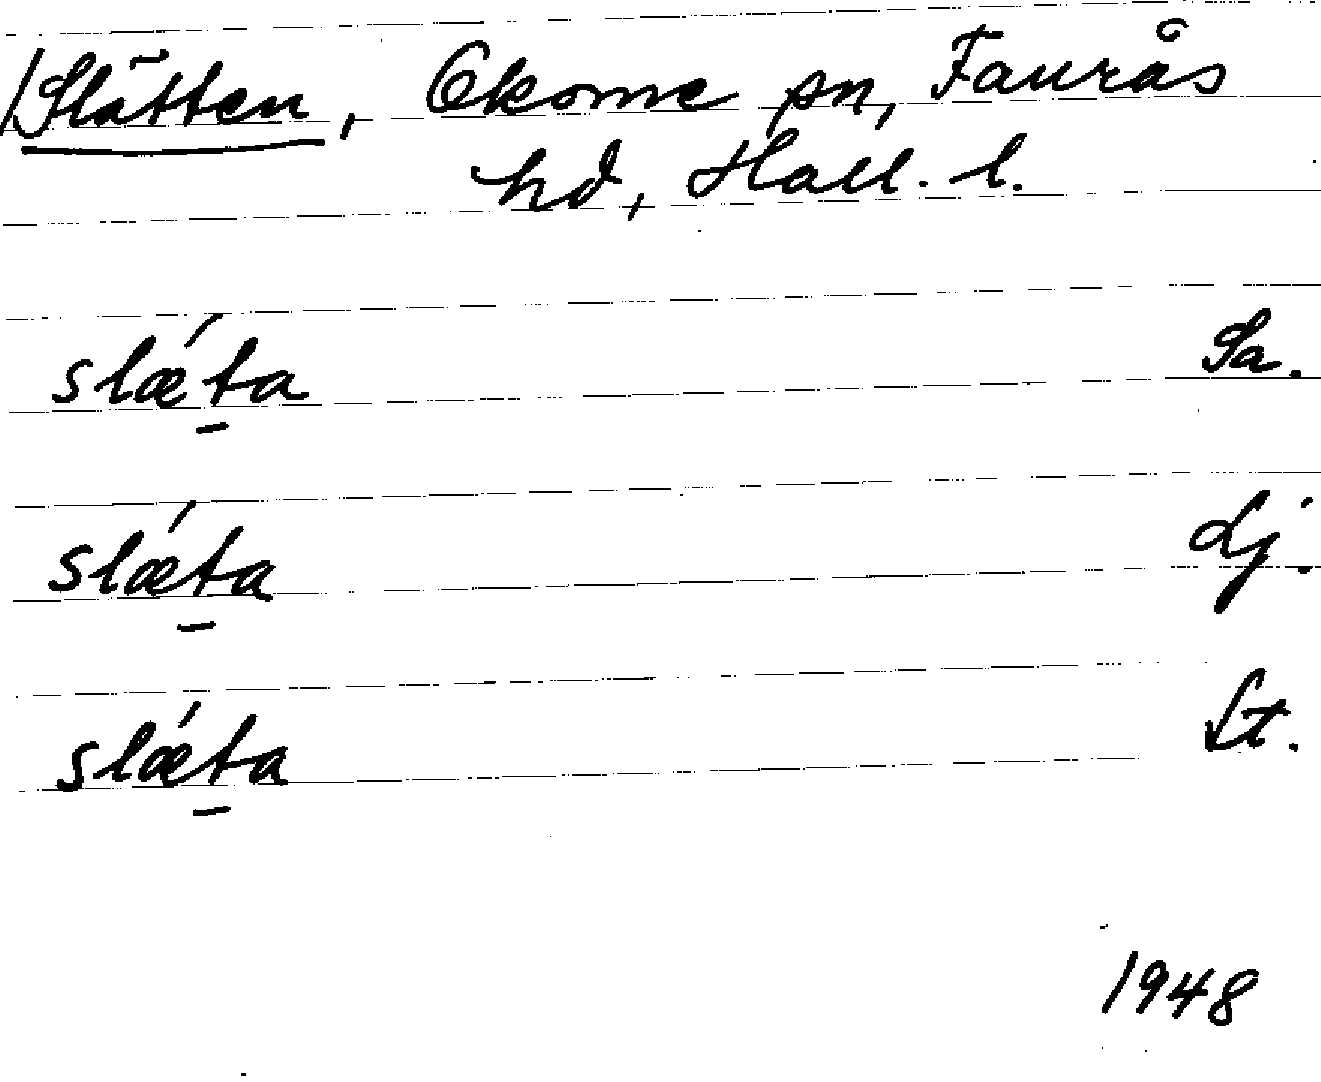 Slätten, Okome sn, Faurås
hd, Hall. l.
slǽt̲a Sa.
slǽt̲a Lj.
slǽt̲a St.
1948